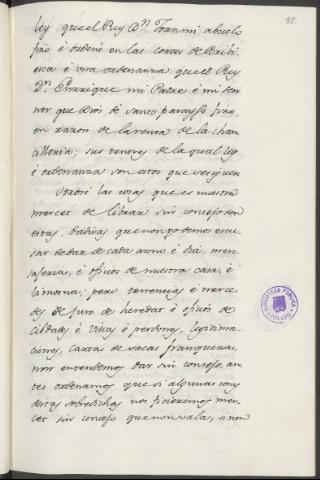 ley que el Rey D.n Joan mi abuelo
fizo è ordenò en las cortes de Bribi-
esca è una ordenanza que el Rey
D.n Enrrique mi Padre è mi sen-
nor que Dios dè santo parayso fizo
en razon de la renta de la chan-
cilleria; sus tenores de la qual ley
è ordenanza son estos que se siguen
Otrosi las cosas que es nuestra
merced de librar sin consejo son
estas, dadivas que non podemos escu-
sar de dar de cada anno è dia, men-
saferias, è oficios de nuestra casa, è
limosna; pero terrencias è merce-
des de juro de heredat è oficios de
cibdades è villas è perdones, legitima-
ciones, cartas de sacas franquezas,
non entendemos dar sin consejo, an-
tes ordenamos que si algunas cosas
destas sobredichas nos ficieremos mer-
cet sin consejo que non vala, si non
BIBLIOTECA PUBLICA
TOLEDO